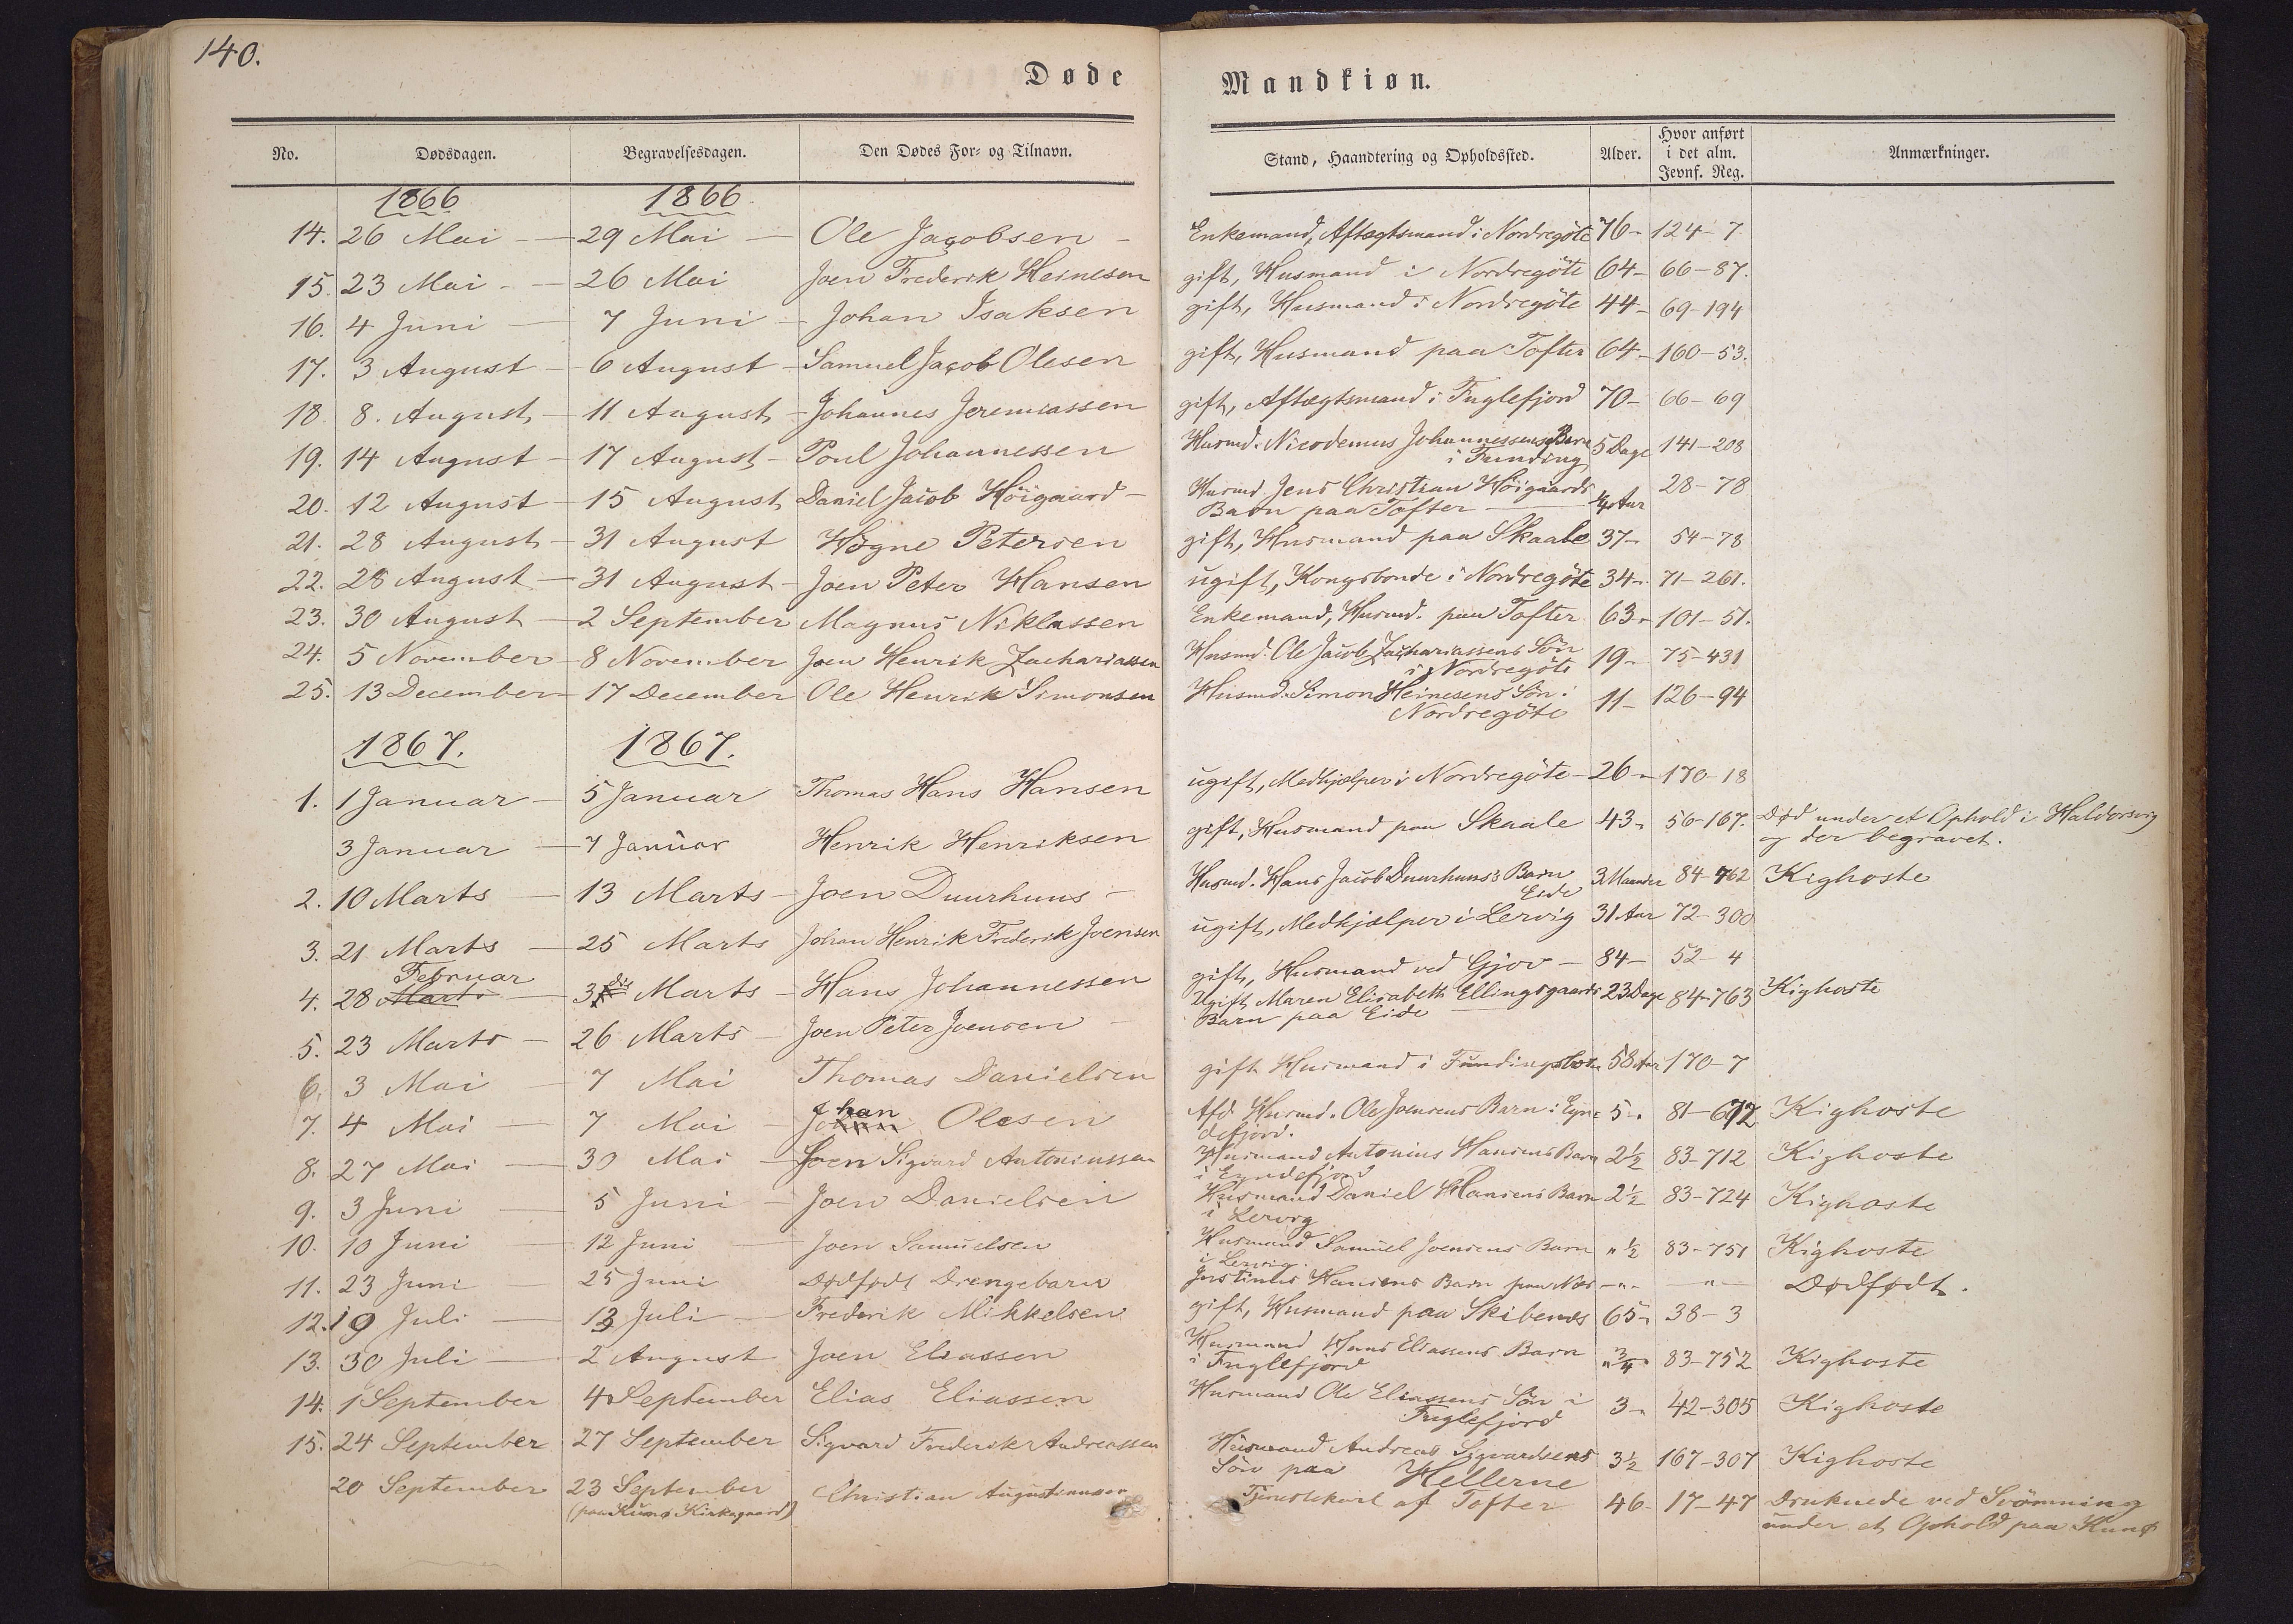 140.
Døde Mandkiøn.
No. Dødsdagen. Begravelsesdagen. Den Dødes For- og Tilnavn. Stand, Haandtering og Opholdssted. Alder. Hvor anført i det alm. Jevnf. Reg. Anmærkninger.
1866 1866.
14. 26 Mai — 29 Mai — Ole Jacobsen — Enkemand, Aftægtsmand i Nordregöte 76 - 124 - 7
15. 23 Mai — 26 Mai Joen Frederik Heinesen gift, Husmand i Nordregöte 64 - 66 - 87.
16. 4 Juni — 7 Juni — Johan Isaksen gift, Husmand i Nordregöte 44 - 69 - 194
17. 3 August — 6 August — Samuel Jacob Olesen gift, Husmand paa Tofter 64 - 160 - 53.
18. 8. August — 11 August — Johannes Jeremiassen gift, Aftægtsmand i Fuglefjord 70 - 66 - 69
19. 14 August — 17 August — Poul Johannessen Husmd. Nicodemus Johannessens Barn 5 Dage 141 - 208
i Funding
20. 12 August — 15 August Daniel Jacob Höigaard — Husmd Jens Christian Höigaards 28 - 78
Barn paa Tofter — ¼ Aar
21. 28 August — 31 August Högne Petersen gift, Husmand paa Skaale 37 - 54 - 78
22. 28 August — 31 August — Joen Peter Hansen ugift, Kongsbonde i Nordregöte 34 - 71 - 261.
23. 30 August — 2 September Magnus Niklassen Enkemand, Husmd. paa Tofter 63 - 101 - 51.
24. 5 November — 8 November Joen Henrik Zachariassen Husmd. Ole Jacob Zachariassens Sön 19 - 75 - 431
i Nordregöte
25. 13 December — 17 December Ole Henrik Simonsen Husmd. Simon Heinesens Sön i 11 - 126 - 94
Nordregöte
1867. 1867.
1. 1 Januar — 5 Januar Thomas Hans Hansen ugift, Medhjælper i Nordregöte — 26 - 170 - 18
3 Januar — 7 Januar Henrik Henriksen gift, Husmand paa Skaale 43 - 56 - 167. Död under et Ophold i Haldorsvig
og der begravet.
2. 10 Marts — 13 Marts — Joen Duurhuus — Husmd. Hans Jacob Duurhuus's Barn 3 Maaneder 84 - 762 Kighoste
Eide
3. 21 Marts — 25 Marts Johan Henrik Frederik Joensen ugift, Medhjælper i Lervig 31 Aar 72 - 300
Februar
4. 28 Marts — 3 die Marts — Hans Johannessen gift, Husmand ved Gjov — 84 - 52 - 4
5. 23 Marts — 26 Marts — Joen Peter Joensen — Ugift Maren Elisabeth Ellingsgaards 23 Dage 84 - 763 Kighoste
Barn paa Eide
6. 3 Mai — 7 Mai Thomas Danielsen gift Husmand i Fundingsbotn 58 Aar 170 - 7
7. 4 Mai — 7 Mai — Johan Olesen Afd Husmd. Ole Joensens Barn i Eyn- 5 - 81 - 672 Kighoste
defjord.
8. 27 Mai — 30 Mai — Joen Sigvard Antoniussen Husmand Antonius Hansens Barn 2½ 83 - 712 Kighoste
i Eyndefjord
9. 3 Juni — 5 Juni — Joen Danielsen Husmand Daniel Hansens Barn 2½ 83 - 724 Kighoste
i Lervig
10. 10 Juni — 12 Juni — Joen Samuelsen Husmand Samuel Joensens Barn " ½ 83 - 751 Kighoste
i Lervig.
11. 23 Juni — 25 Juni Dødfødt Drengebarn Justinus Hansens Barn paa Næs - " - — " — Dødfødt.
12. 19 Juli — 13 Juli — Frederik Mikkelsen gift, Husmand paa Skibenæs 65 - 38 - 3
13. 30 Juli — 2 August Joen Eliassen Husmand Hans Eliassens Barn " ¾ 83 - 752 Kighoste
i Fuglefjord
14. 1 September 4 September Elias Eliassen Husmand Ole Eliassens Sön i 3 - 42 - 305 Kighoste
Fuglefjord
15. 24 September 27 September Sigvard Frederik Andreassen Husmand Andreas Sigvardsens 3½ 167 - 307 Kighoste
Sön paa Hellerne
20 September 23 September Christian Augustinussen Tjenestekarl af Tofter 46 - 17 - 47 Druknede ved Svömning
(paa Kunø Kirkegaard) under et Ophold paa Kunø